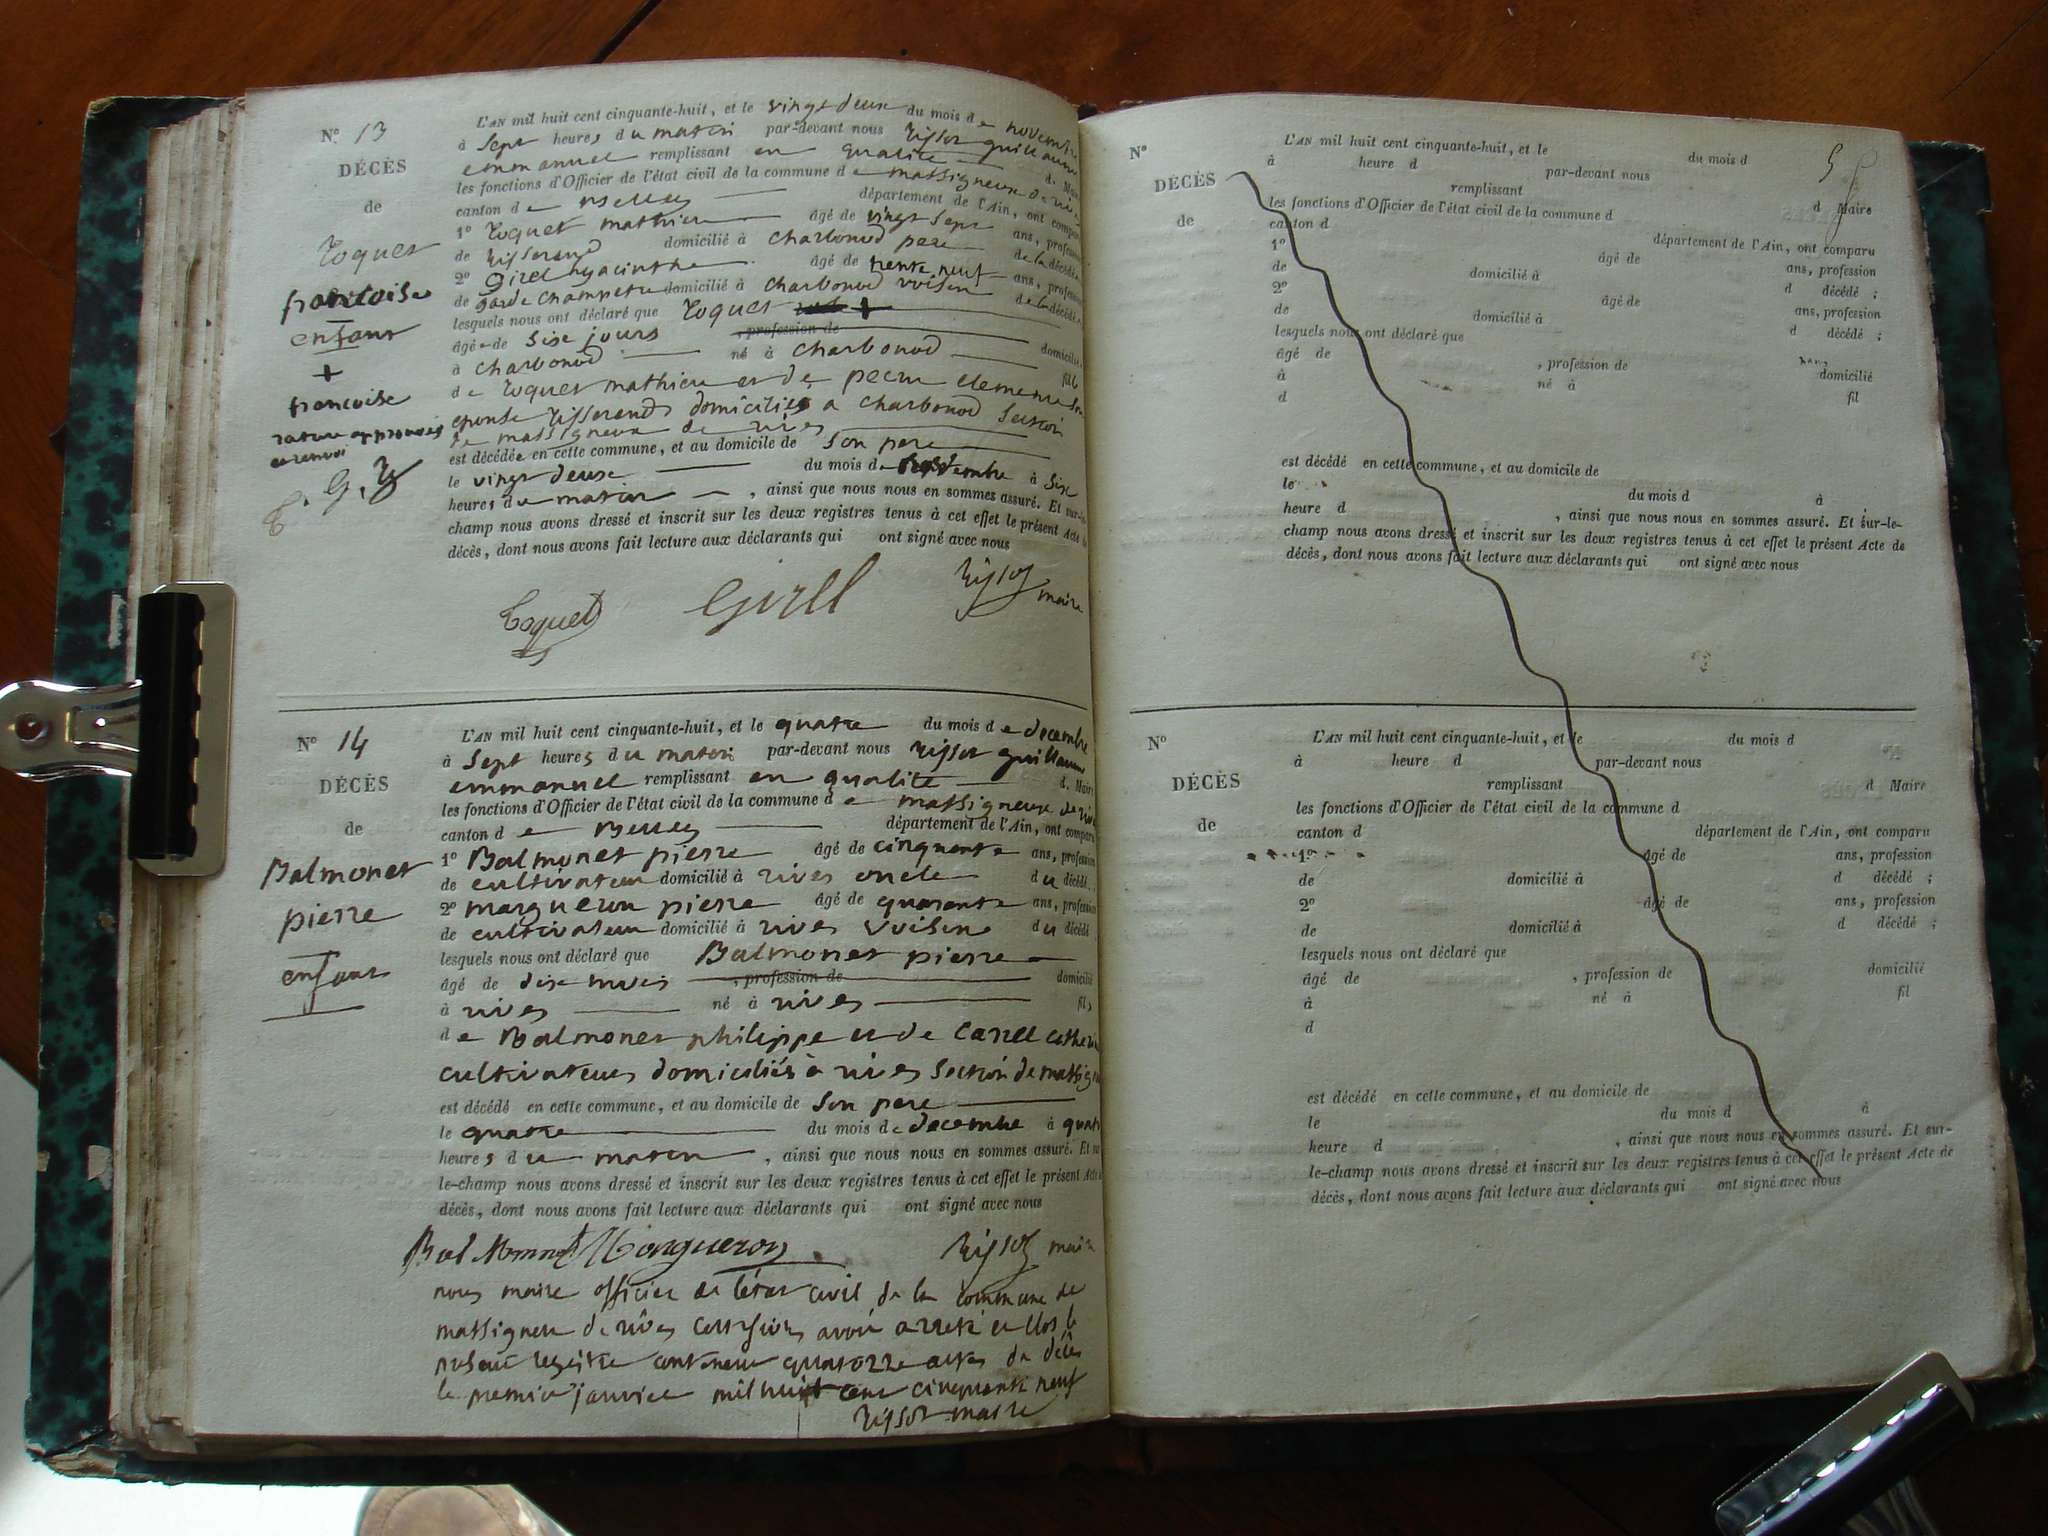 N.º 13
DÉCÈS
de
Toquet
françoise
enfant
+
françoise
rature approuvées
et renvoi
T. G. R
L'AN mil huit cent cinquante-huit, et le vingt deux du mois de novembre
à Sept heures du matin par-devant nous Rissot guillaume
emmanuel remplissant en qualité d. Maire
les fonctions d'Officier de l'état civil de la commune de massigneux de rives
canton de Belley département de l'Ain, ont comparu
1º Toquet mathieu âgé de vingt Sept ans, profession
de tisserand domicilié à Charbonod pere de la décédée
2º Girel hyacinthe âgé de trente neuf ans, profession
de garde champetre domicilié à Charbonod voisin de la décédée
lesquels nous ont déclaré que Toquet +
âgé de Six jours , profession de domicilié
à Charbonod né à Charbonod fille
de Toquet mathieu et de pecru clemence Son
epouse tisserands domiciliés a Charbonod Section
de massigneux de rives
est décédée en cette commune, et au domicile de Son pere
le vingt deux du mois de novembre à Six
heures du matin , ainsi que nous nous en sommes assuré. Et sur-le-
champ nous avons dressé et inscrit sur les deux registres tenus à cet effet le présent Acte de
décès, dont nous avons fait lecture aux déclarants qui ont signé avec nous
Toquet Girel Rissot maire
N.º 14
DÉCÈS
de
Balmonet
pierre
enfant
L'AN mil huit cent cinquante-huit, et le quatre du mois de decembre
à Sept heures du matin par-devant nous Rissot guillaume
emmanuel remplissant en qualité d. Maire
les fonctions d'Officier de l'état civil de la commune de massigneux de rives
canton de Belley département de l'Ain, ont comparu
1º Balmonet pierre âgé de cinquante ans, profession
de cultivateur domicilié à rives oncle du décédé
2º margueron pierre âgé de quarante ans, profession
de cultivateur domicilié à rives voisin du décédé
lesquels nous ont déclaré que Balmonet pierre
âgé de dix mois , profession de domicilié
à rives né à rives fils
de Balmonet philippe et de Carrel catherine
cultivateurs domiciliés à rives Section de massigneux
est décédé en cette commune, et au domicile de Son pere
le quatre du mois de decembre à quatre
heures du matin , ainsi que nous nous en sommes assuré. Et sur-
le-champ nous avons dressé et inscrit sur les deux registres tenus à cet effet le présent Acte de
décès, dont nous avons fait lecture aux déclarants qui ont signé avec nous
Bal Monnet Margueron Rissot maire
nous maire officier de l'état civil de la commune de
massigneu de rives certifions avoir arreté et clos le
present registre contenant quatorze actes de décès
le premier janvier mil huit cent cinquante neuf
Rissot maire
Nº
DÉCÈS
de
L'AN mil huit cent cinquante-huit, et le du mois d
à heure d par-devant nous
remplissant d Maire
les fonctions d'Officier de l'état civil de la commune d
canton d département de l'Ain, ont comparu
1º âgé de ans, profession
de domicilié à d décédé ;
2º âgé de ans, profession
de domicilié à d décédé ;
lesquels nous ont déclaré que
âgé de , profession de domicilié
à né à fil
d
est décédé en cette commune, et au domicile de
le du mois d à
heure d , ainsi que nous nous en sommes assuré. Et sur-le-
champ nous avons dressé et inscrit sur les deux registres tenus à cet effet le présent Acte de
décès, dont nous avons fait lecture aux déclarants qui ont signé avec nous
Nº
DÉCÈS
de
L'AN mil huit cent cinquante-huit, et le du mois d
à heure d par-devant nous
remplissant d Maire
les fonctions d'Officier de l'état civil de la commune d
canton d département de l'Ain, ont comparu
1º âgé de ans, profession
de domicilié à d décédé ;
2º âgé de ans, profession
de domicilié à d décédé ;
lesquels nous ont déclaré que
âgé de , profession de domicilié
à né à fil
d
est décédé en cette commune, et au domicile de
le du mois d à
heure d , ainsi que nous nous en sommes assuré. Et sur-
le-champ nous avons dressé et inscrit sur les deux registres tenus à cet effet le présent Acte de
décès, dont nous avons fait lecture aux déclarants qui ont signé avec nous